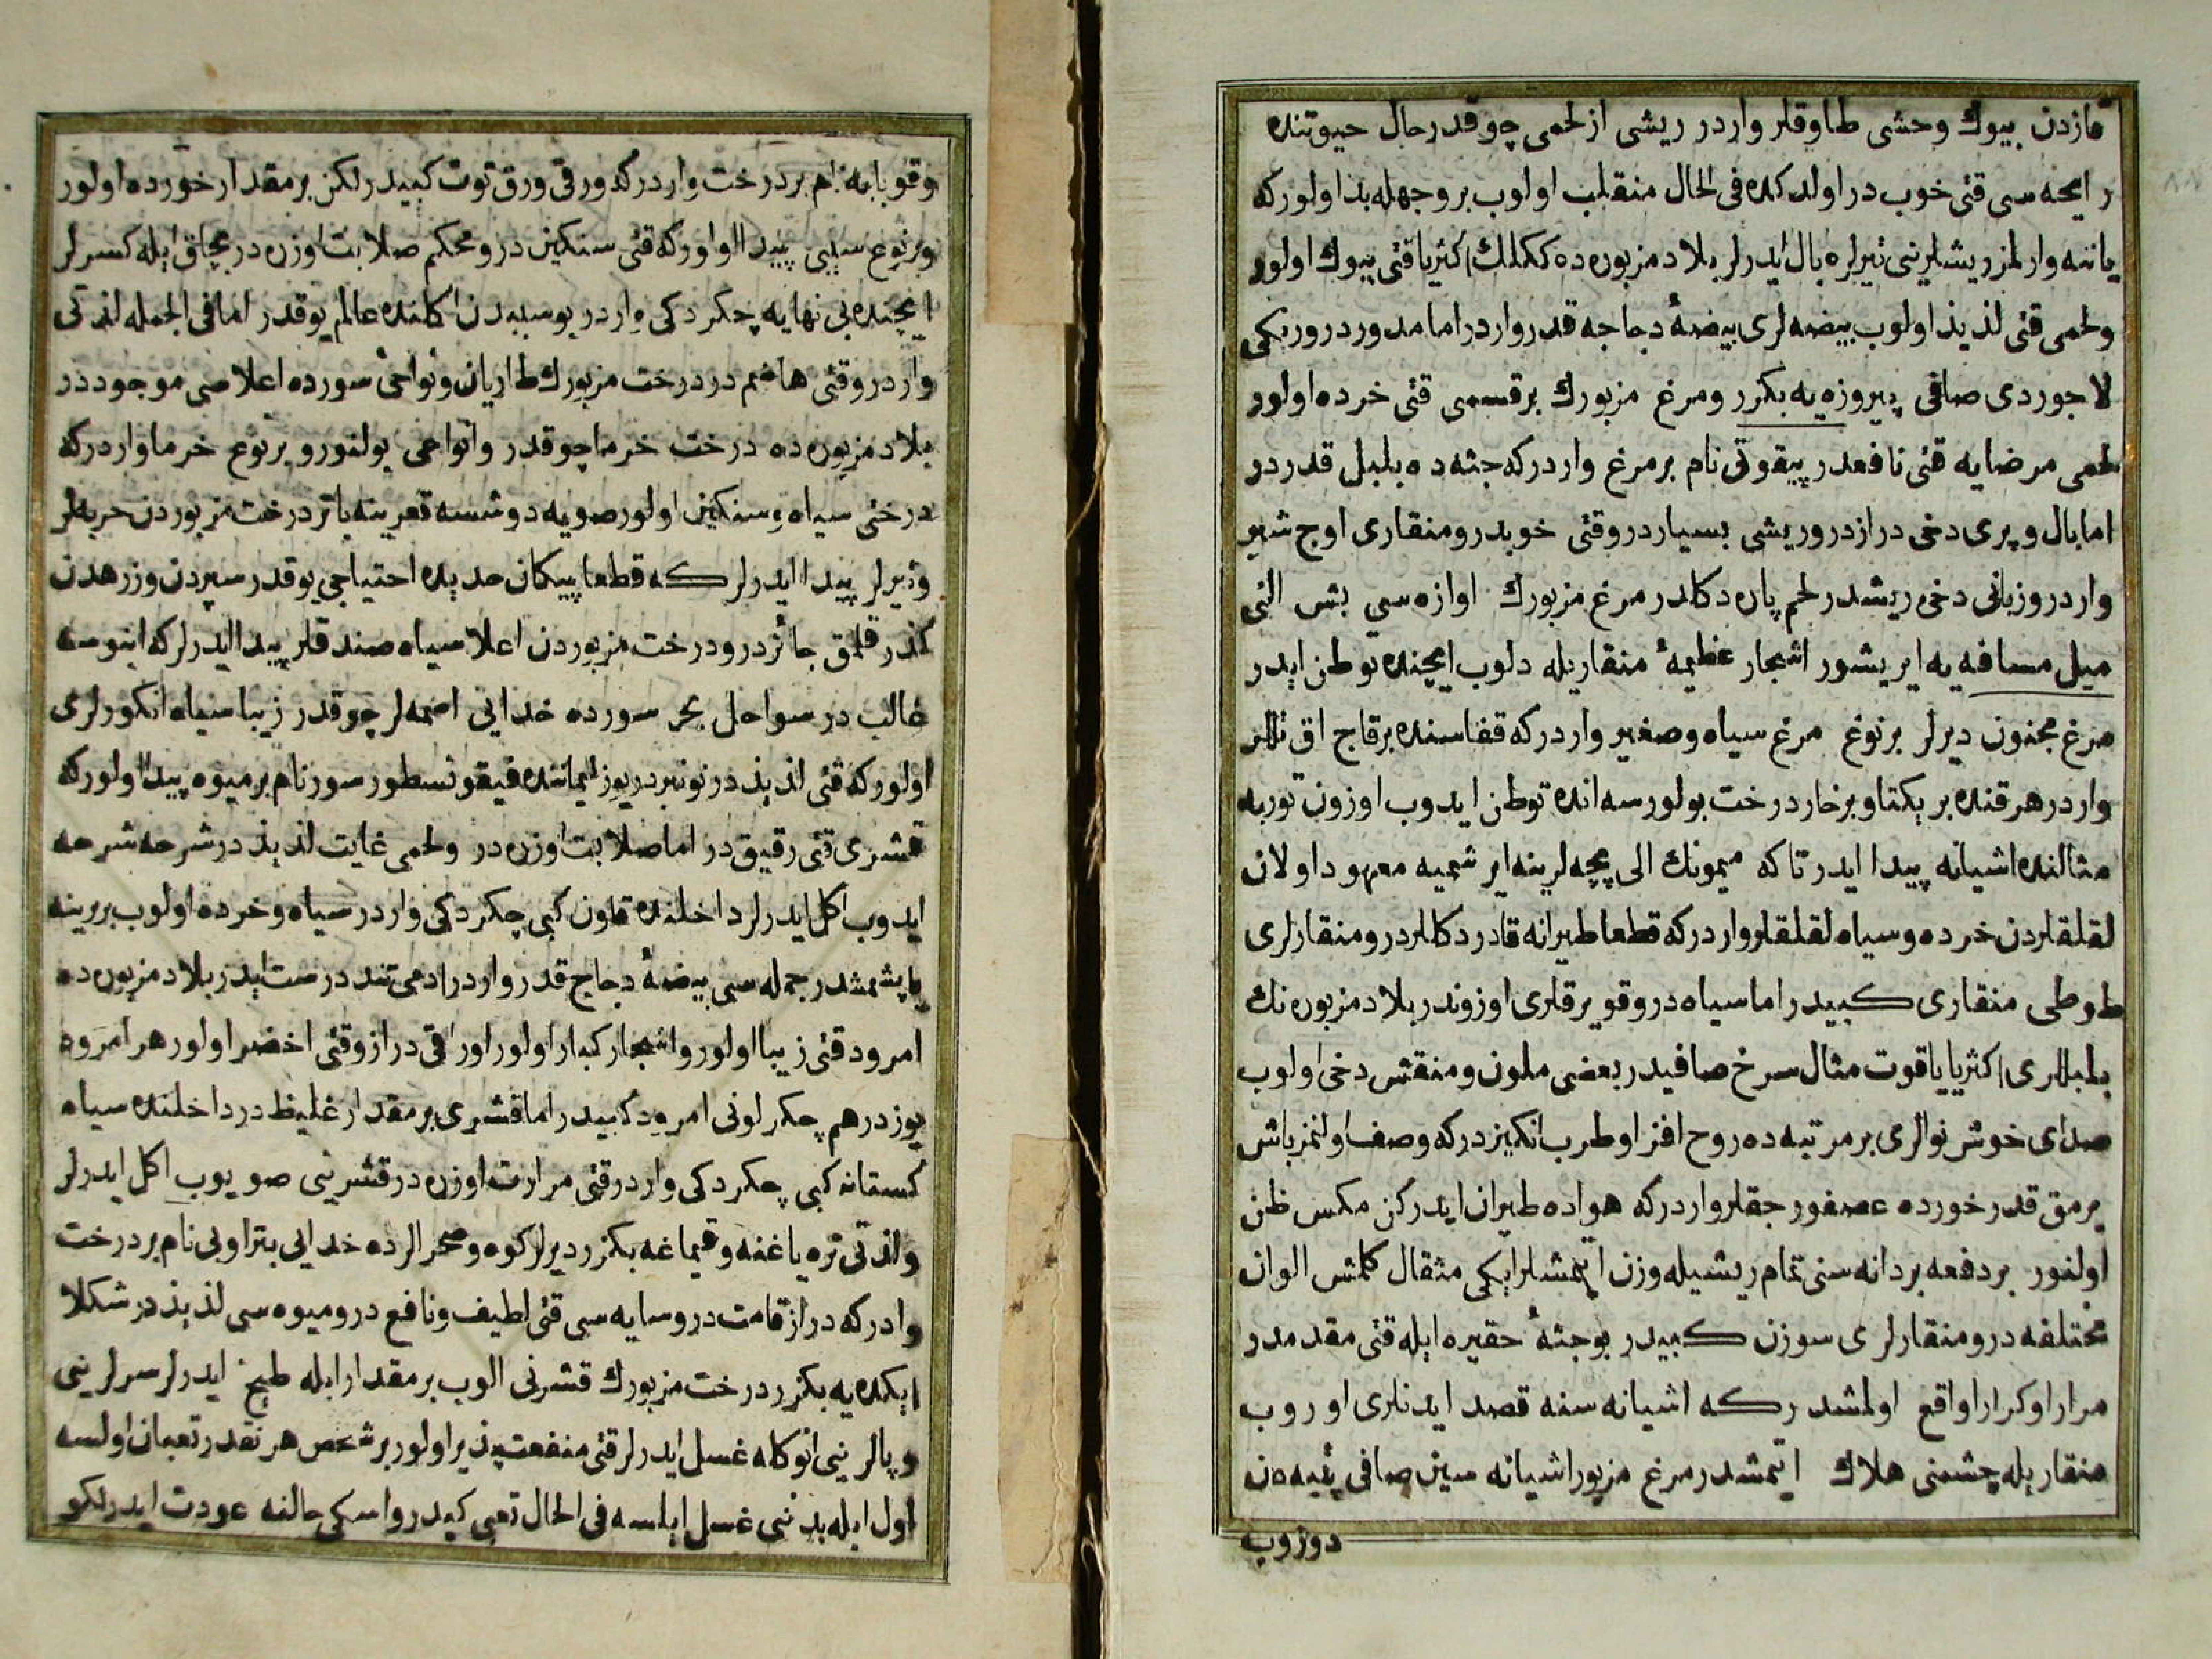 قازدن بیوك وحشی طاوقلر واردر ریشی از لحمی چوقدر حال حیوتنده
رایحه سی قتی خوب در اولدكده فی الحال منقلب اولوب بر وجهله بد اولور كه
یاننه وارلمز ریشلرنی تیرلره بال ایدرلر بلاد مزبوره ده ككلك اكثریا قتی بیوك اولور
ولحمی قتی لذیذ اولوب بیضه لری بیضهٔ دجاجه قدر واردر اما مدور در ورنكی
لاجوردی صافی پیروزه یه بكزر ومرغ مزبورك بر قسمی قتی خرده اولور
لحمی مرضایه قتی نافعدر پیقوتی نام بر مرغ واردر كه جثه ده بلبل قدر در
اما بال وپری دخی درازدر وریشی بسیاردر وقتی خوبدر ومنقاری اوج شبر
واردر وزبانی دخی ریشدر لحم پاره دكلدر مرغ مزبورك اوازه سی بش التی
میل مسافه یه ایریشور اشجار عظیمهٔ منقاریله دلوب ایچنده توطن ایدر
مرغ مجنون دیرلر بر نوع مرغ سیاه وصغیر واردر كه قفاسنده بر قاج اق تللر
واردر هر قنده بر یكتا وبرخار درخت بولورسه انده توطن ایدوب اوزون توربه
مثالنده اشیانه پیدا ایدر تا كه میمونك الی بچه لرینه ایرشمیه معهود اولان
لقلقلردن خرده وسیاه لقلقلر واردر كه قطعا طیرانه قادر دكللردر ومنقارلری
طوطی منقاری كبیدر اما سیاه در وقویرقلری اوزوندر بلاد مزبوره نك
بلبللری اكثریا یاقوت مثال سرخ صافیدر بعضی ملون ومنقش دخی اولوب
صدای خوش نوالری بر مرتبه ده روح افزا وطرب انكیزدر كه وصف اولنمز باش
برمق قدر خورده عصفور جقلر واردر كه هواده طیران ایدركن مكس ظن
اولنور بر دفعه بر دانه سنی تمام ریشیله وزن ایتمشلر ایكی مثقال كلمش الوان
مختلفه در ومنقارلری سوزن كبیدر بو جثهٔ حقیره ایله قتی مقدمدر
مرارا وكرارا واقع اولمشدر كه اشیانه سنه قصد ایدنلری اوروب
منقاریله چشمنی هلاك ایتمشدر مرغ مزبور اشیانه سین صافی پنبه دن
دوزوب
وقوبابه نام بر درخت واردر كه ورقی ورق توت كبیدر لكن بر مقدار خورده اولور
وبر نوع سیبی پیدا اولور كه قتی سنكین در ومحكم صلابت اوزره در بچاق ایله كسرلر
ایچنده بی نهایه چكردكی واردر بو سببدن اكلنده عالم یوقدر اما فی الجمله لذتی
واردر وقتی هاضم در درخت مزبورك طاریان ونواحیٔ سورده اعلاسی موجوددر
بلاد مزبوره ده درخت خرما چوقدر وانواعی بولنور وبر نوع خرما واردر كه
درختی سیاه وسنكین اولور صویه دوشسه قعرینه باتر درخت مزبوردن حربه لر
وتیرلر پیدا ایدرلر كه قطعا پیكان حدیده احتیاجی یوقدر سپردن وزرهدن
كذر قلمق جائزدر ودرخت مزبوردن اعلا سیاه صندقلر پیدا ایدرلر كه ابنوسه
غالب در سواحل بحر سورده خدایی اصمه لر چوقدر زیبا سیاه انكورلری
اولور كه قتی لذیذ در نونبر دریوز لیماننده فیقونسطور سور نام بر میوه پیدا اولور كه
قشری قتی رقیق در اما صلابت اوزره در ولحمی غایت لذیذ در شرحه شرحه
ایدوب اكل ایدرلر داخلنده قاون كبی چكردكی واردر سیاه وخرده اولوب بربرینه
یاپشمشدر جمله سی بیضهٔ دجاج قدر واردر ادمی تندرست ایدر بلاد مزبوره ده
امرود قتی زیبا اولور واشجار كبار اولور اوراقی دراز وقتی اخضر اولور هر امرود
یوز درهم چكر لونی امرود كبیدر اما قشری بر مقدار غلیظ در داخلنده سیاه
كستانه كبی چكردكی واردر قتی مرارت اوزره در قشرینی صویوب اكل ایدرلر
ولذتی تره یاغنه وقیماغه بكزر دیرلر كوه وصحرالرده خدایی بتر اوبی نام بر درخت
واردر كه دراز قامت در وسایه سی قتی لطیف ونافع در ومیوه سی لذیذ در شكلا
ایكده یه بكزر درخت مزبورك قشرنی الوب بر مقدار ایله طبخ ایدرلر سرلرینی
وپالرینی انوكله غسل ایدرلر قتی منفعت پذیر اولور بر شخص هر نقدر تعبان اولسه
اول ایله بدنی غسل ایلسه فی الحال تعبی كیدر واسكی حالنه عودت ایدر لكو